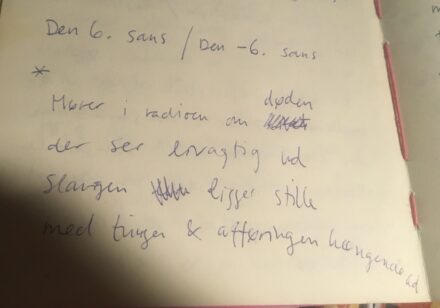 Den 6. sans / Den -6. sans
*
Hører i radioen om døden
der ser livagtig ud
Slangen ligger stille
med tungen & afføringen hængende ud